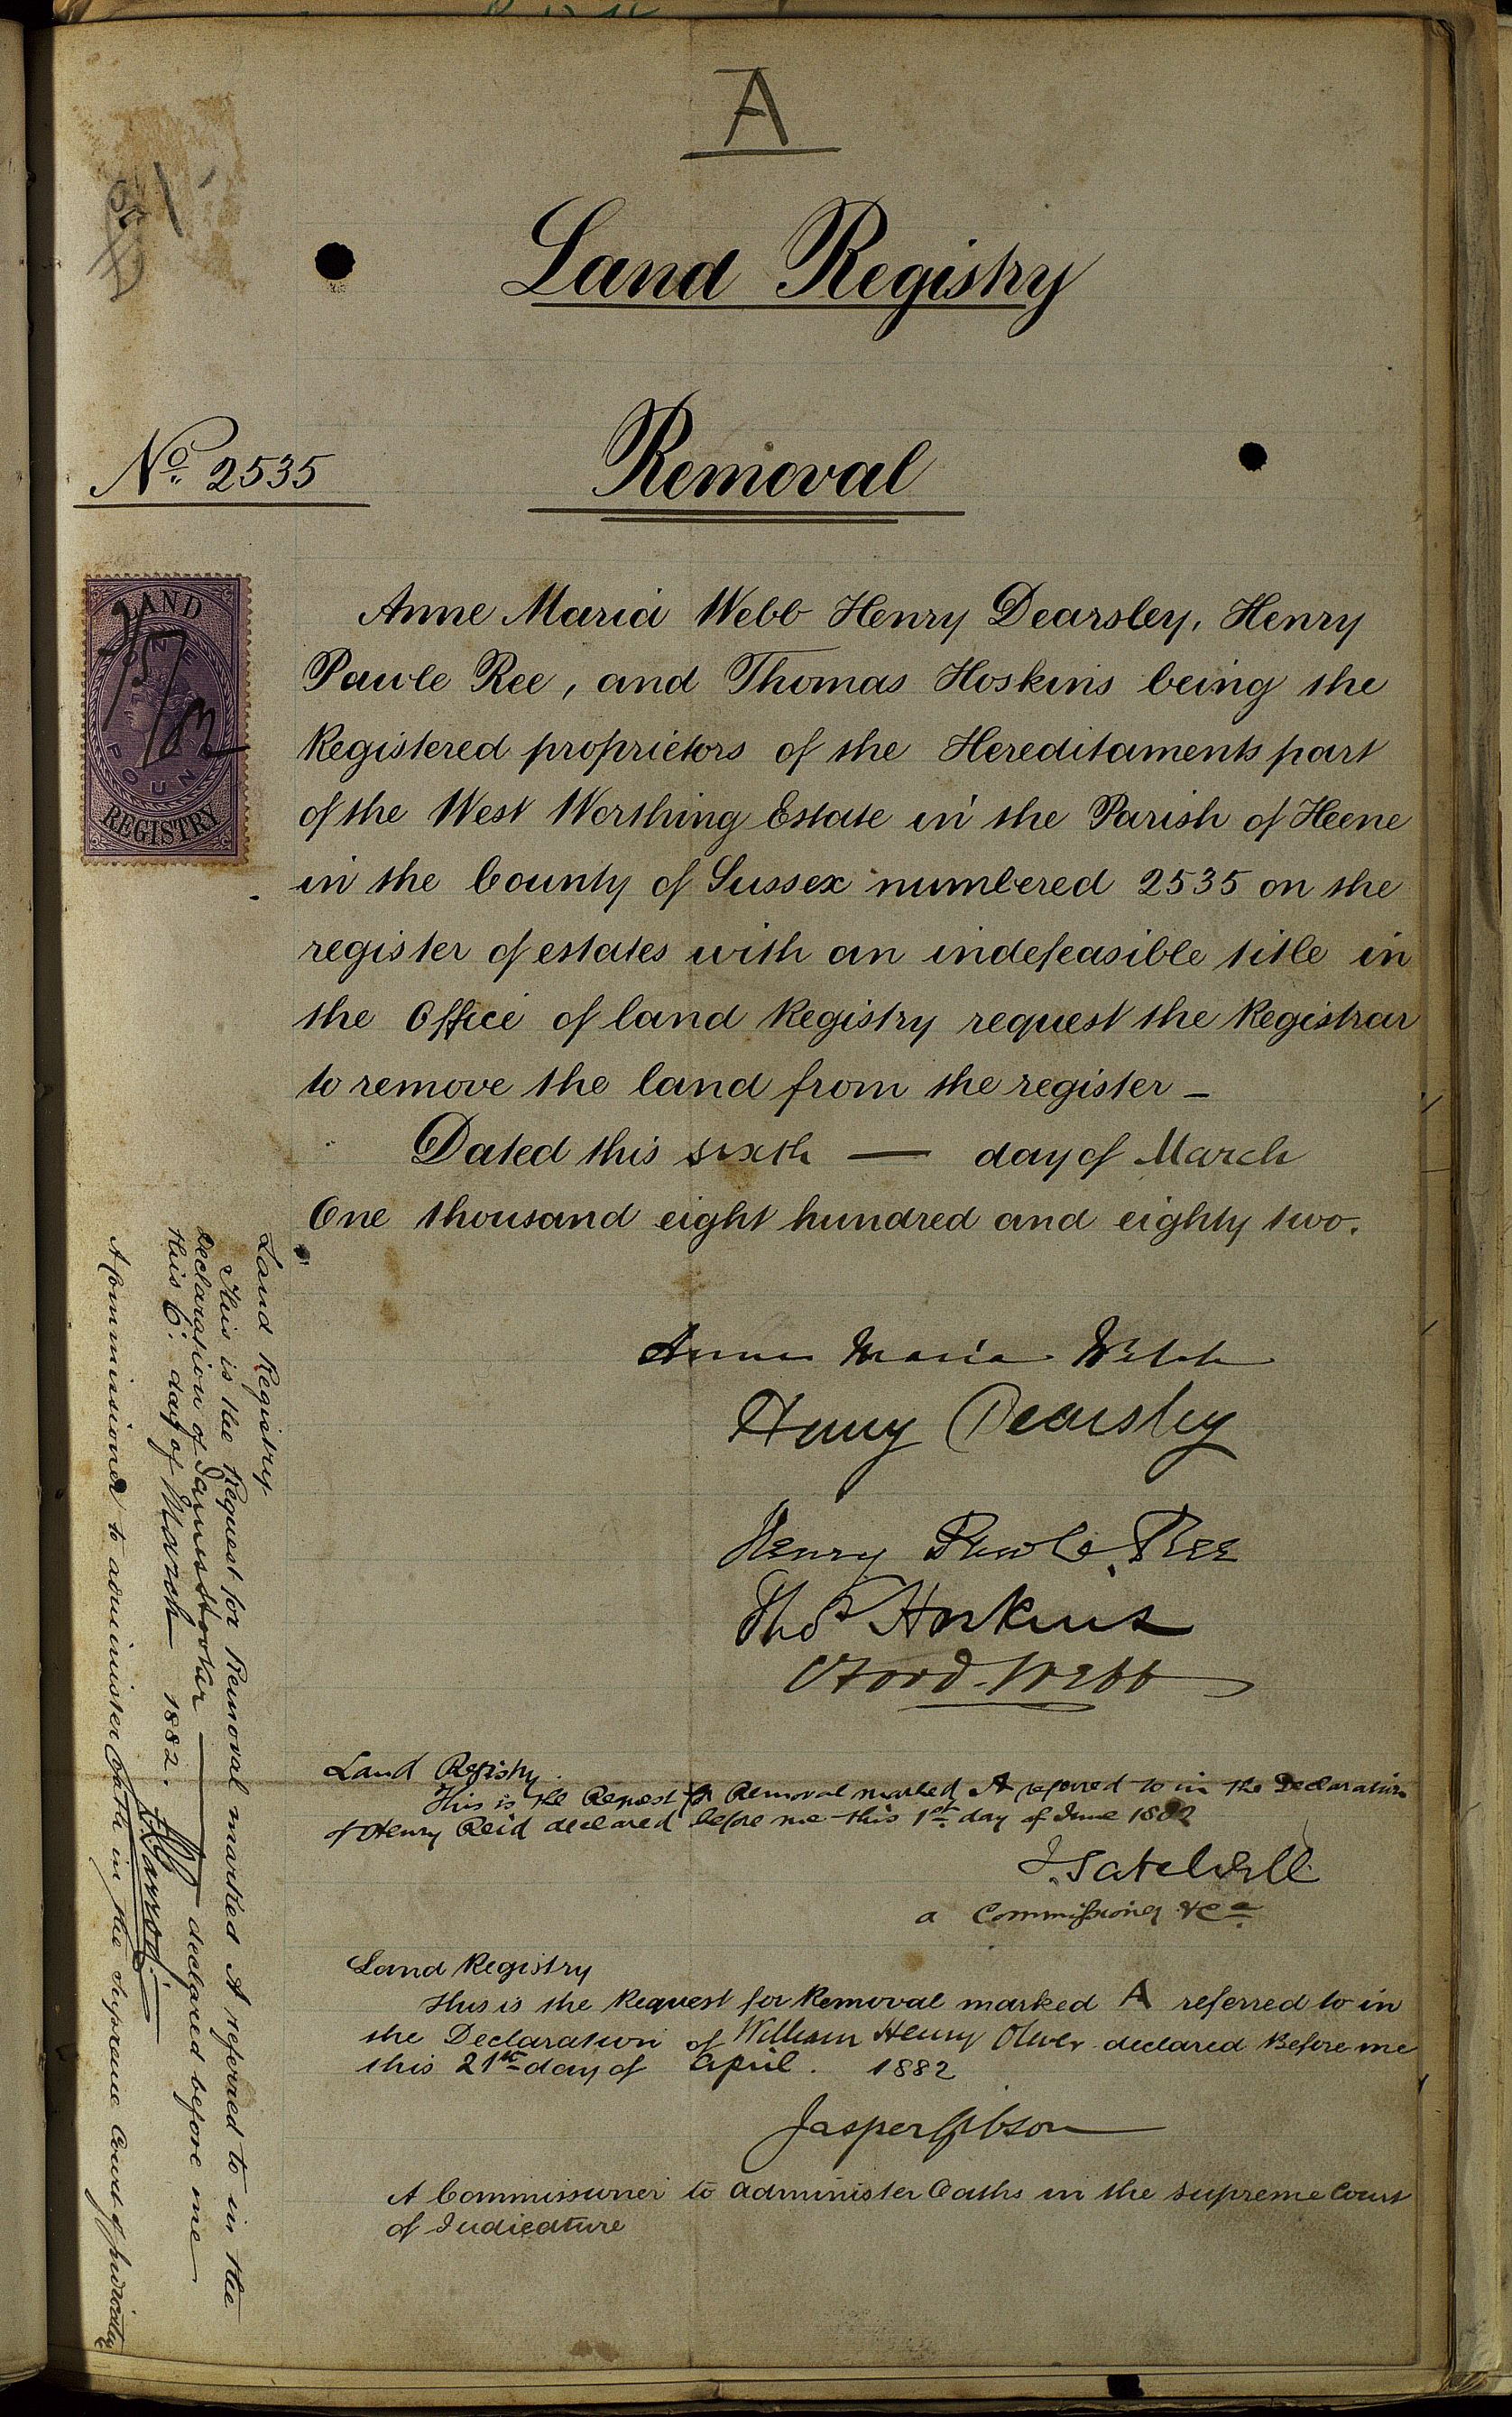 A
Land Registry
No. 2535
Removal
LAND
ONE
POUND
REGISTRY
Anne Maria Webb Henry Dearsley, Henry
Pawle Ree, and Thomas Hoskins being the
Registered proprietors of the Hereditaments part
of the West Worthing Estate in the Parish of Heene
in the County of Sussex numbered 2535 on the
register of estates with an indefeasible title in
the Office of land Registry request the Registrar
to remove the land from the register –
Dated this sixth — day of March
One thousand eight hundred and eighty two.
Anne Maria Webb
Henry Dearsley
Henry Pawle Ree
Thos Hoskins
Webb
Land Registry.
This is the Request for Removal marked A referred to in the Declaration
of Henry Reid declared before me this 1st day of June 1882
a Commissioner &ca
Land Registry
This is the Request for Removal marked A referred to in
the Declaration of William Henry Oliver declared Before me
this 21st day of April. 1882
Jasper Gibson
A Commissioner to administer Oaths in the supreme Court
of Judicature
Land Registry.
This is the Request for Removal marked A referred to in the
Declaration of James declared before me
this 6th day of March 1882.
A Commissioner to administer Oaths in the Supreme Court of Judicature